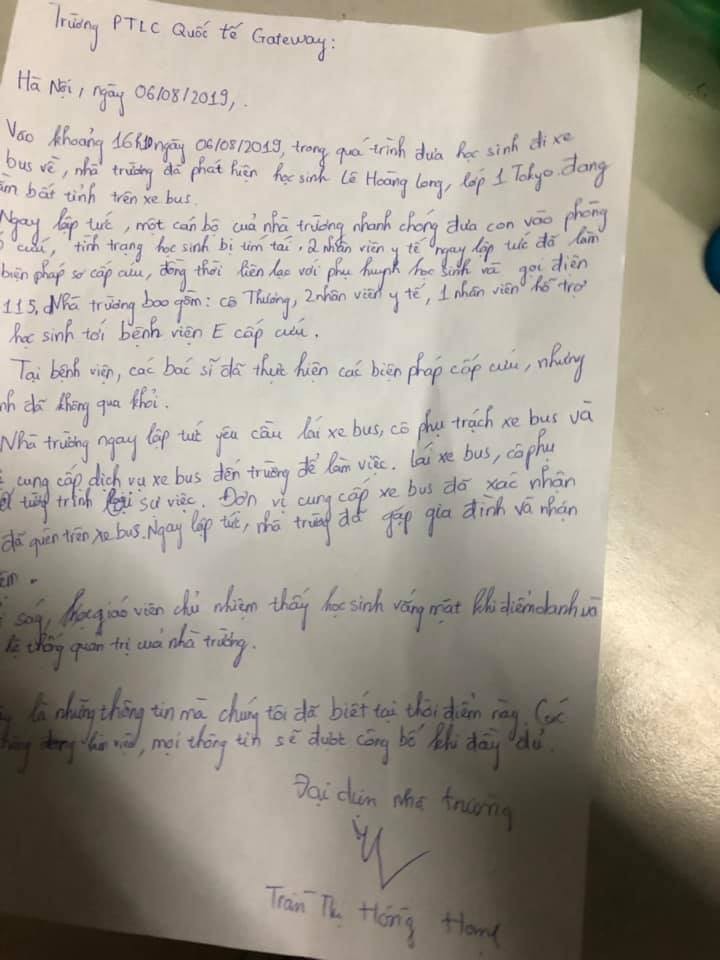 Trường PTLC Quốc tế Gateway:
Hà Nội, ngày 06/08/2019,.
Vào khoảng 16h10 ngày 06/08/2019, trong quá trình đưa học sinh đi xe
bus về, nhà trường đã phát hiện học sinh Lê Hoàng Long, lớp 1 Tokyo đang
bất tỉnh trên xe bus.
Ngay lập tức, một cán bộ của nhà trường nhanh chóng đưa con vào phòng
cứu, tình trạng học sinh bị tím tái. 2 nhân viên y tế ngay lập tức đã làm
biện pháp sơ cấp cứu, đồng thời liên lạc với phụ huynh học sinh và gọi điện
115. Nhà trường bao gồm: cô Thương, 2 nhân viên y tế, 1 nhân viên hỗ trợ
học sinh tới bệnh viện E cấp cứu.
Tại bệnh viện, các bác sĩ đã thực hiện các biện pháp cấp cứu, nhưng
đã không qua khỏi.
Nhà trường ngay lập tức yêu cầu lái xe bus, cô phụ trách xe bus và
cung cấp dịch vụ xe bus đến trường để làm việc. Lái xe bus, cô phụ
tường trình lại sự việc. Đơn vị cung cấp xe bus đã xác nhận
đã quên trên xe bus. Ngay lập tức, nhà trường đã gặp gia đình và nhận
giáo viên chủ nhiệm thấy học sinh vắng mặt khi điểm danh và
hệ thống quản trị của nhà trường.
là những thông tin mà chúng tôi đã biết tại thời điểm này. Các
mọi thông tin sẽ được công bố khi đầy đủ.
Đại diện nhà trường
Trần Thị Hồng Hạnh